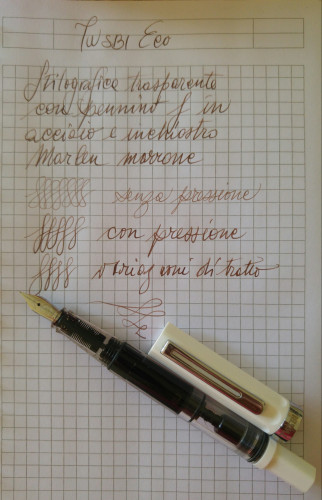 TWSBI Eco
Stilografica trasparente
con pennino f in
acciaio e inchiostro
Marlen marrone
senza pressione
con pressione
variazioni di tratto